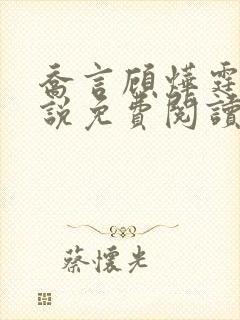 喬言顧燁霆
說免費閱讀
蔡懷光